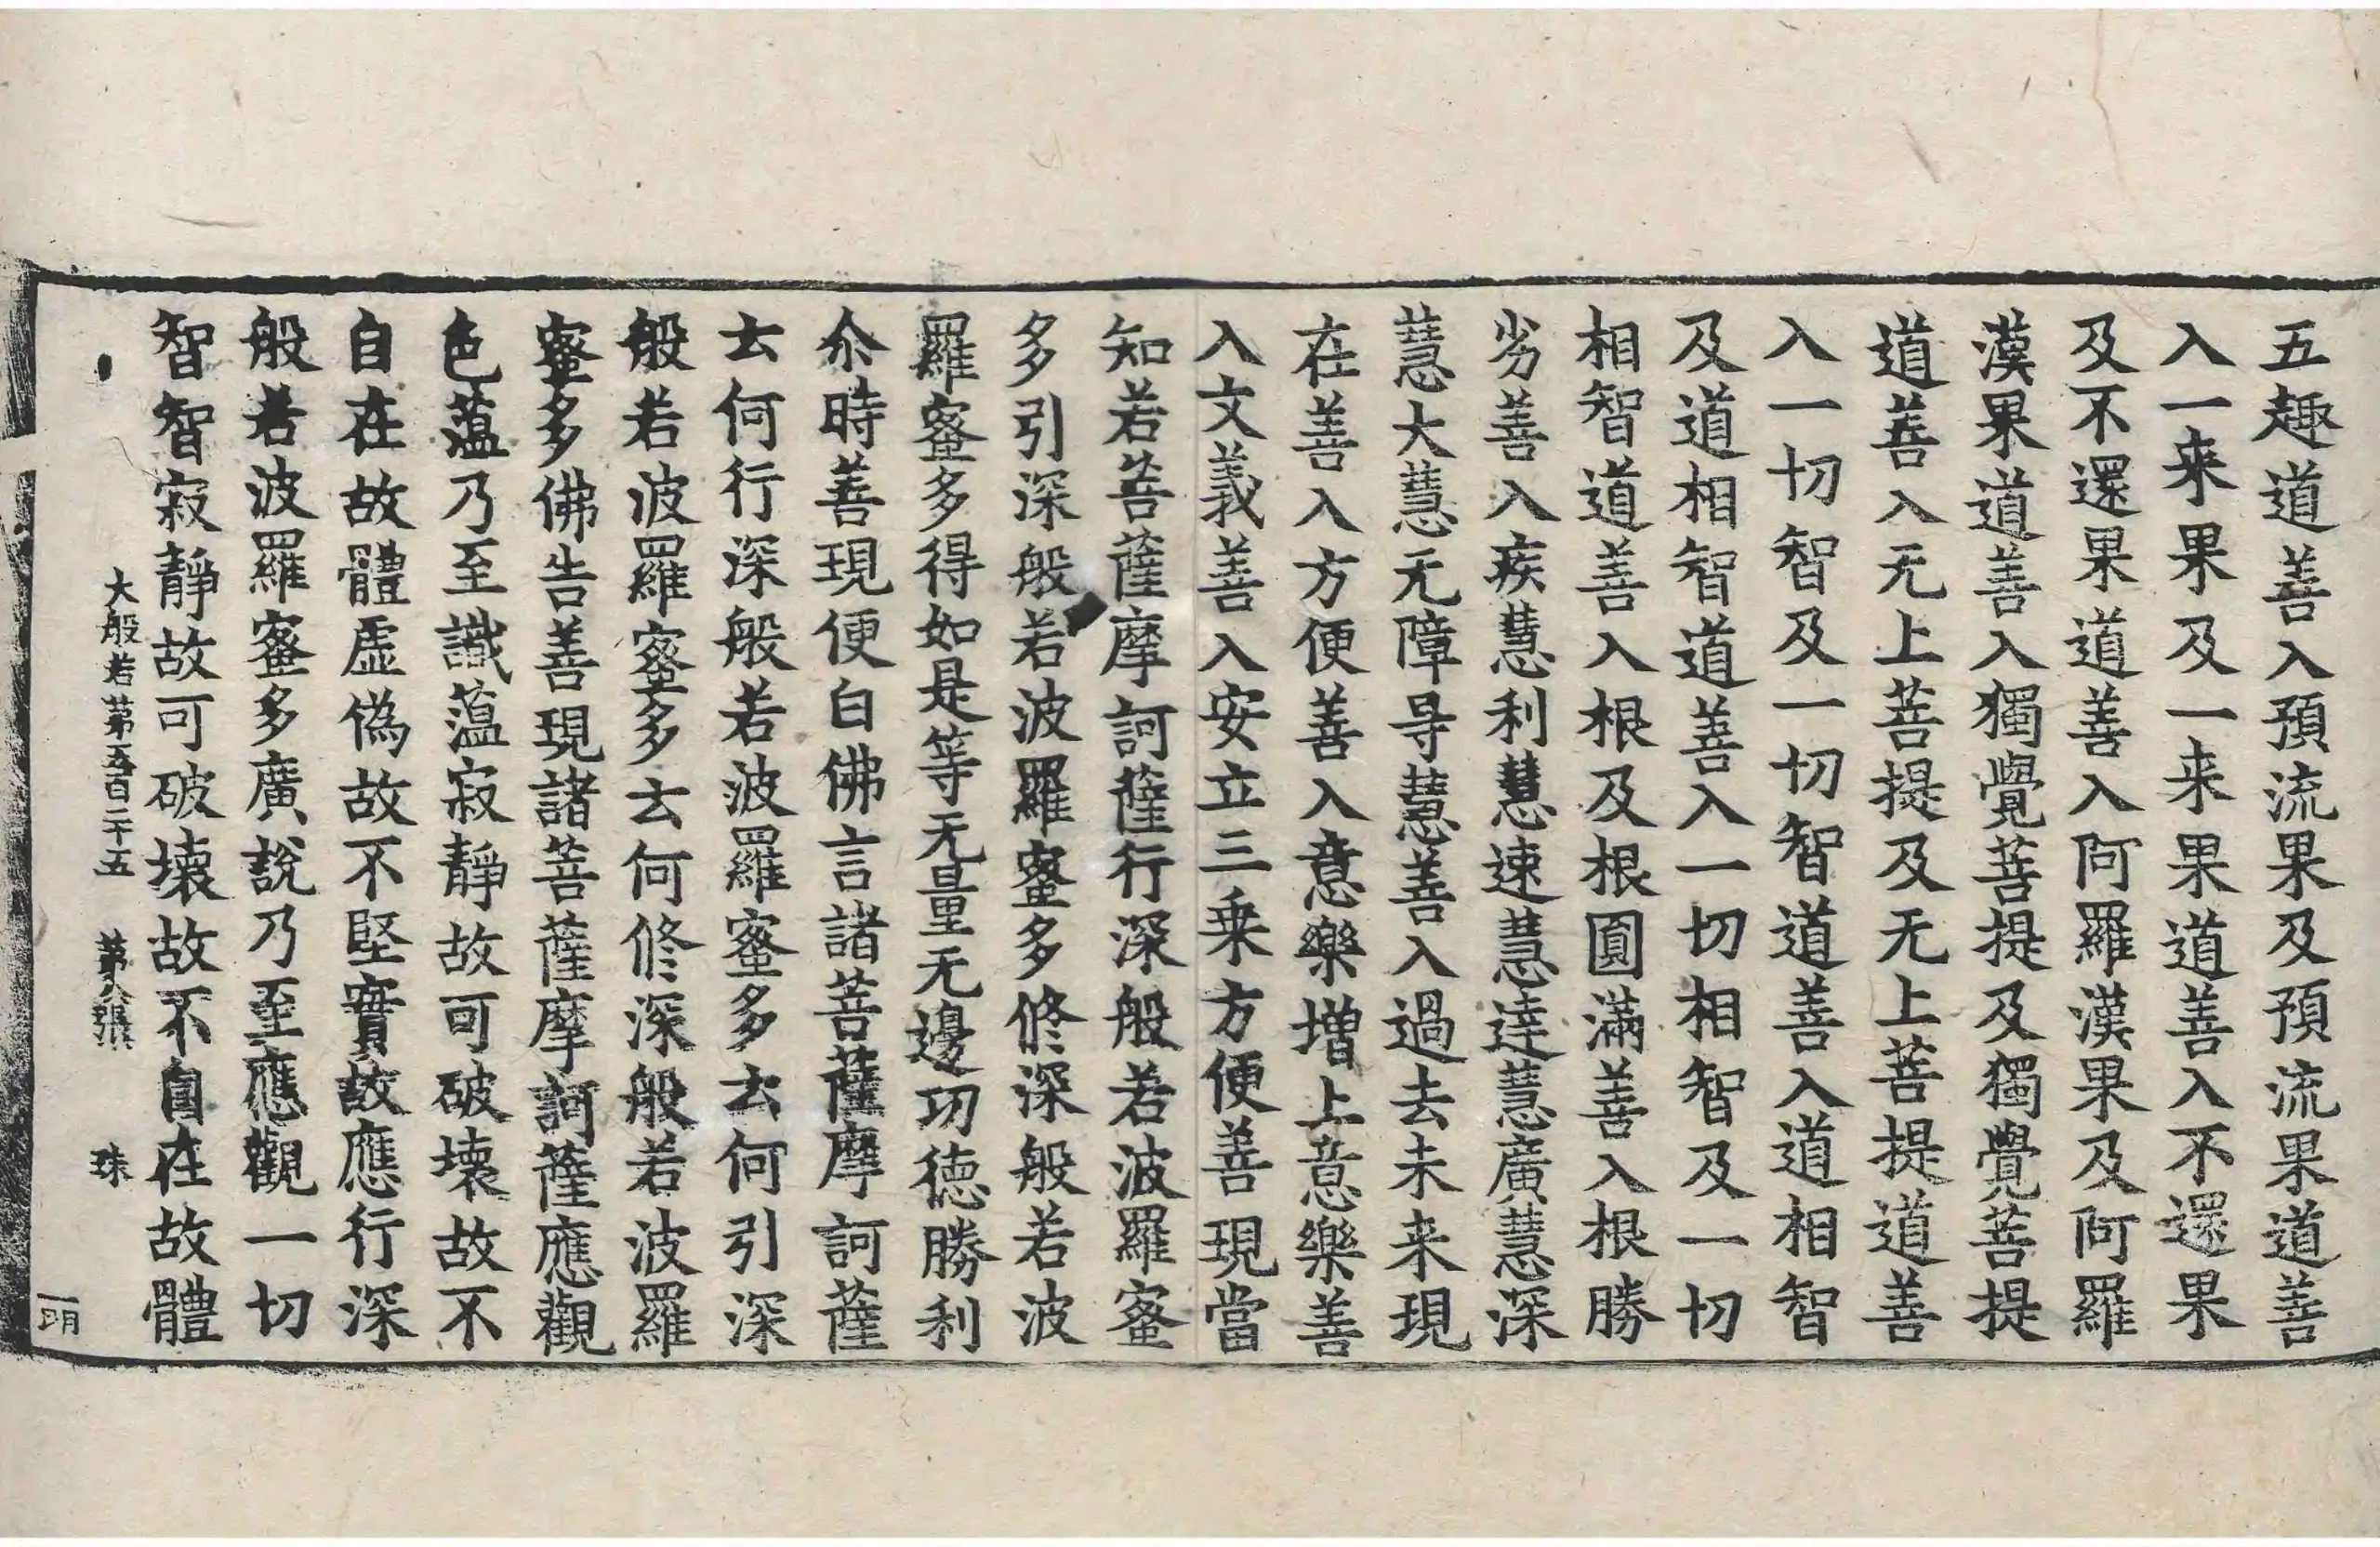 五趣道善入預流果及預流果道善
入一来果及一来果道善入不還果
及不還果道善入阿羅漢果及阿羅
漢果道善入獨覺菩提及獨覺菩提
道善入无上菩提及无上菩提道善
入一切智及一切智道善入道相智
及道相智道善入一切相智及一切
相智道善入根及根圓滿善入根勝
劣善入疾慧利慧速慧達慧廣慧深
慧大慧无障㝵慧善入過去未来現
在善入方便善入意樂增上意樂善
入文義善入安立三乗方便善現當
知若菩薩摩訶薩行深般若波羅蜜
多引深般若波羅蜜多修深般若波
羅蜜多得如是等无量无邊功德勝利
尒時善現便白佛言諸菩薩摩訶薩
云何行深般若波羅蜜多云何引深
般若波羅蜜多云何修深般若波羅
蜜多佛告善現諸菩薩摩訶薩應觀
色蘊乃至識蘊寂靜故可破壞故不
自在故體虛偽故不堅實故應行深
般若波羅蜜多廣說乃至應觀一切
智智寂靜故可破壞故不自在故體
大般若第五百二十五 第八張 珠